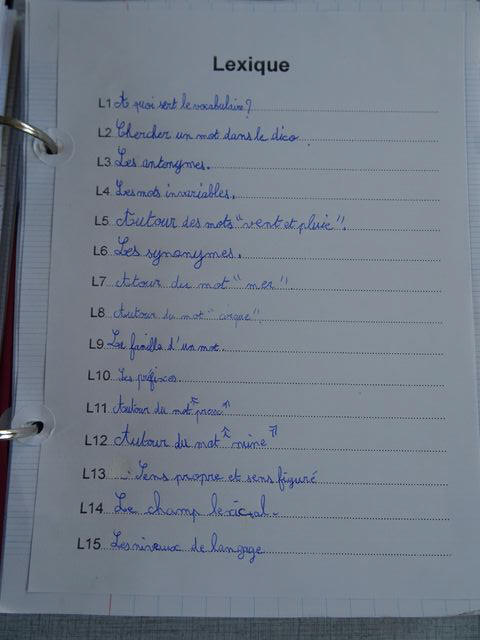 Lexique
L1 A quoi sert le vocabulaire?
L2 Chercher un mot dans le dico.
L3 Les antonymes.
L4 Les mots invariables.
L5 Autour des mots "vent et pluie".
L6 Les synonymes.
L7 Atour du mot "mer"
L8 Autour du mot "cirque".
L9 La famille d'un mot.
L10 Les préfixes.
L11 Autour du mot
L12 Autour du mot "mine"
L13 Sens propre et sens figuré
L14 Le champ lexical.
L15 Les niveaux de langage